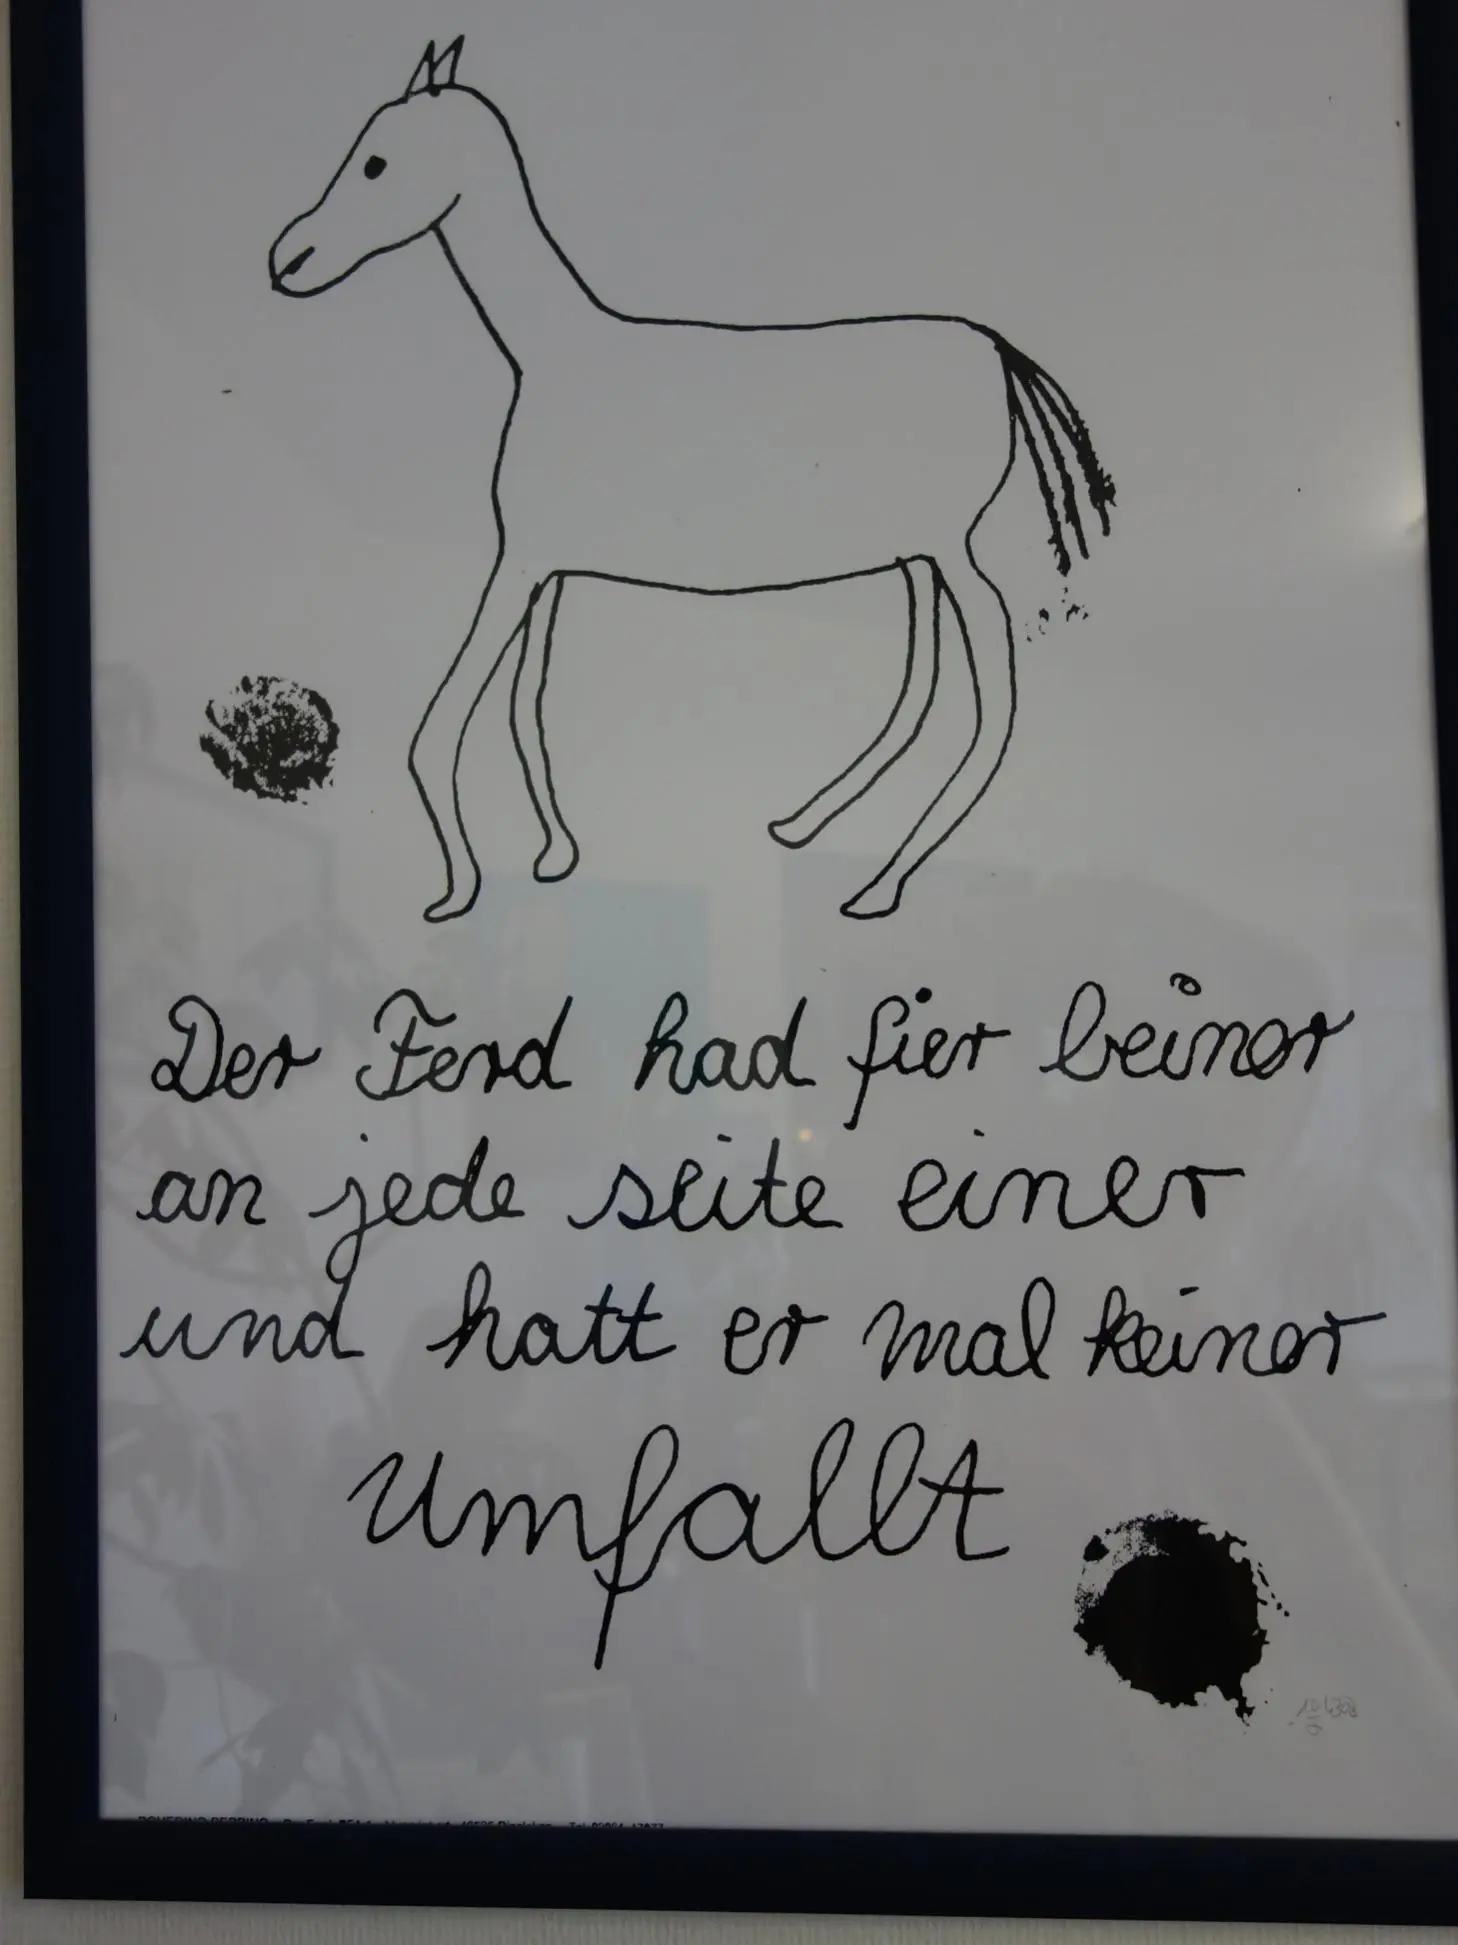 Der Ferd had fier beiner
an jede seite einer
und hatt er mal keiner
Umfallt